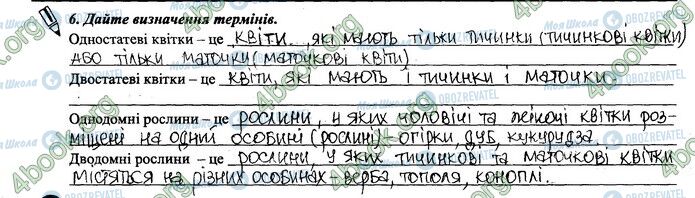 6. Дайте визначення термінів.
Одностатеві квітки – це квіти, які мають тільки тичинки (тичинкові квітки)
або тільки маточки (маточкові квіти)
Двостатеві квітки – це квіти, які мають і тичинки і маточки.
Однодомні рослини – це рослини, у яких чоловічі та жіночі квітки роз-
міщені на одній особині (рослині) огірки, дуб, кукурудза.
Дводомні рослини – це рослини, у яких тичинкові та маточкові квітки
містяться на різних особинах – верба, тополя, коноплі.